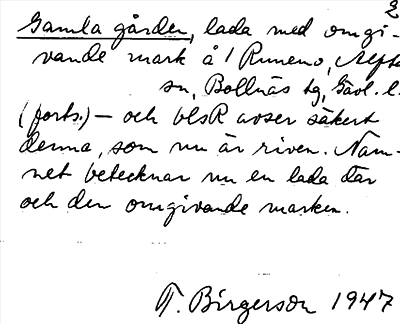 2
Gamla gården, lada med omgi-
vande mark å 1 Runemo, Alfta
sn, Bollnäs tg, Gävl. l.
(forts.) – och blsR avser säkert
denna, som nu är riven. Nam-
net betecknar nu en lada där
och den omgivande marken.
T. Birgerson 1947